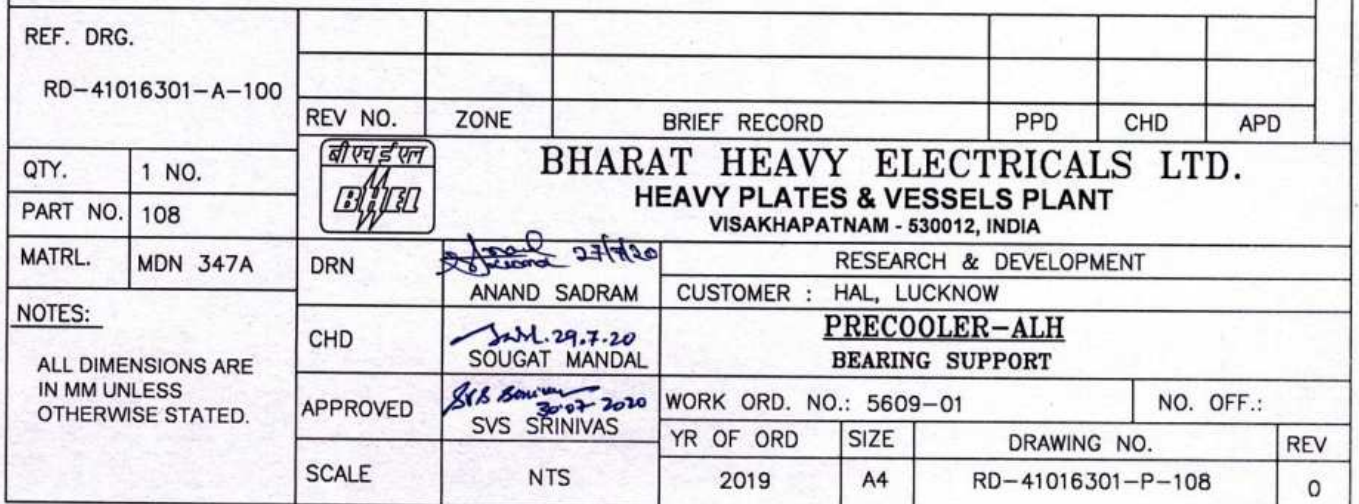 REF. DRG.
RD-41016301-A-100
REV NO. ZONE BRIEF RECORD PPD CHD APD
QTY. 1 NO.
PART NO. 108
MATRL. MDN 347A
NOTES:
ALL DIMENSIONS ARE
IN MM UNLESS
OTHERWISE STATED.
बी एच ई एल
BHEL
BHARAT HEAVY ELECTRICALS LTD.
HEAVY PLATES & VESSELS PLANT
VISAKHAPATNAM - 530012, INDIA
DRN 27/7/20
ANAND SADRAM
CHD 29.7.20
SOUGAT MANDAL
APPROVED 30-07-2020
SVS SRINIVAS
SCALE NTS
RESEARCH & DEVELOPMENT
CUSTOMER : HAL, LUCKNOW
PRECOOLER-ALH
BEARING SUPPORT
WORK ORD. NO.: 5609-01 NO. OFF.:
YR OF ORD SIZE DRAWING NO. REV
2019 A4 RD-41016301-P-108 0